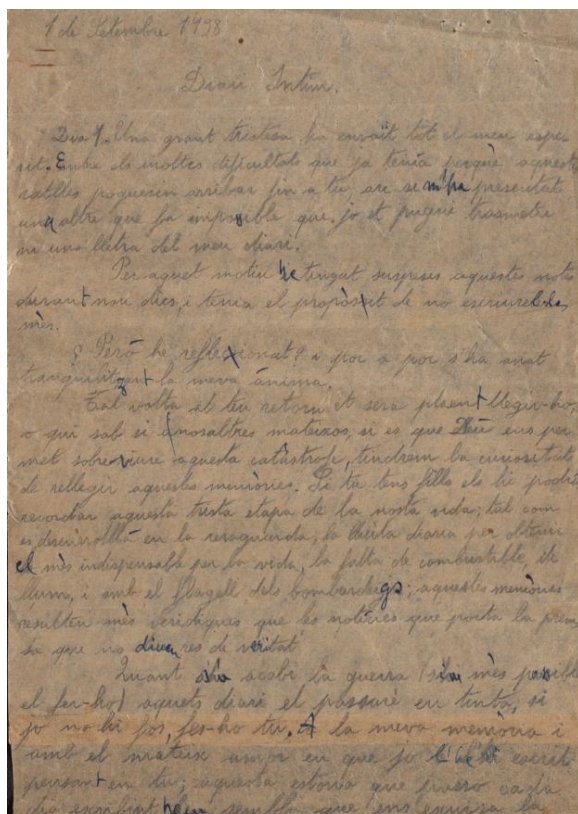 1 de Setembre 1938
Diari Intim.
Dia 1. Una grant tristesa ha envaït tot el meu espe
rit. Entre els moltes dificultats que ja tenia perquè aquestes
ratlles poguesin arribar fin a tu, are se m'ha presentat
una altre que fa imposible que jo et pugui trasmetre
ni una lletra del meu diari.
Per aquet motiu he tingut suspeses aquestes notes
durant nou dies, i tenia el propòsit de no escriure
mès.
¿Però he reflexionat? i poc a poc s'ha anat
tranquilitzant la meva ànima.
Tal volta el teu retorn et serà plaent llegir-ho,
o qui sab si nosaltres mateixos, si es que Deu ens per
met sobreviure aquesta catàstrof, tindrem la curiositat
de rellegir aquestes memòries. Si tu tens fills els hi podràs
recordar aquesta trista etapa de la nosta vida; tal com
es desenrollà en la reraguarda, la lluita diaria per obtenir
el mès indispensable per la vida, la falta de combustible, de
llum, i amb el flagell dels bombardeigs; aquestes memòries
resulten mès veridiques que les noticies que porta la prem
sa que no diuen res de veritat.
Quant acabi la guerra (si mès posible
el fer-ho) aquets diari el passaré en tinta, si
jo no hi fos, fes-ho tu. A la meva memòria i
amb el mateix amor en que jo l'he escrit
pensant en tu; aquesta estona que passo cada
dia escribint sembla que ens esquisa la